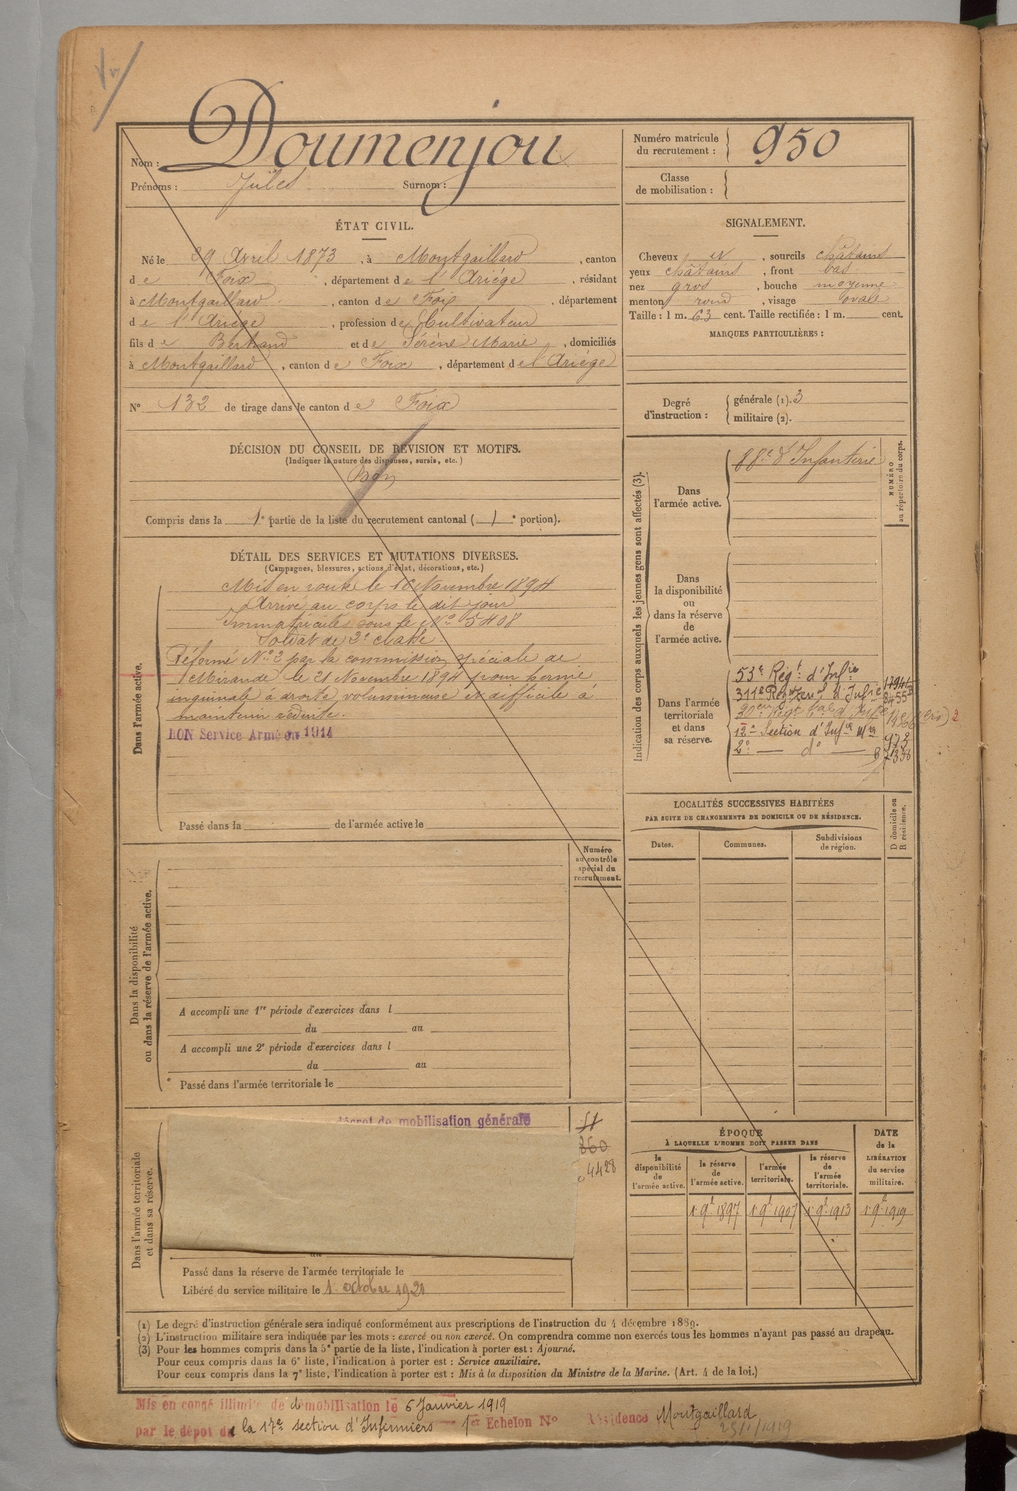 Nom : Doumenjou
Prénoms : Jules Surnom :
Numéro matricule du recrutement : 950
Classe de mobilisation :
ÉTAT CIVIL.
Né le 29 Avril 1873, à Montgaillard, canton
de Foix, département de l'Ariége, résidant
à Montgaillard, canton de Foix, département
de l'Ariége, profession de Cultivateur
fils de Bertrand et de Sérène Marie, domiciliés
à Montgaillard, canton de Foix, département de l'Ariége
N° 132 de tirage dans le canton de Foix
SIGNALEMENT.
Cheveux et, sourcils châtains
yeux châtains, front bas
nez gros, bouche moyenne
menton rond, visage ovale
Taille : 1 m. 63 cent. Taille rectifiée : 1 m. cent.
MARQUES PARTICULIÈRES :
Degré d'instruction : générale (1). 3
militaire (2).
DÉCISION DU CONSEIL DE RÉVISION ET MOTIFS.
(Indiquer la nature des dispenses, sursis, etc.)
Bon
Compris dans la 1e partie de la liste du recrutement cantonal (1e portion).
DÉTAIL DES SERVICES ET MUTATIONS DIVERSES.
(Campagnes, blessures, actions d'éclat, décorations, etc.)
Dans l'armée active.
Mis en route le 16 Novembre 1894
Arrivé au corps le dit jour
Immatriculé sous le N° 5408
Soldat de 2e classe
Réformé N° 2 par la commission spéciale de
Mirande le 21 Novembre 1894 pour hernie
inguinale à droite, volumineuse et difficile à
maintenir réduite.
BON Service Armé en 1914
Passé dans la de l'armée active le
Indication des corps auxquels les jeunes gens sont affectés (3).
NUMÉRO au répertoire du corps.
Dans l'armée active.
88e d'Infanterie
Dans la disponibilité ou dans la réserve de l'armée active.
Dans l'armée territoriale et dans sa réserve.
53e Régt d'Infie
LOCALITÉS SUCCESSIVES HABITÉES
PAR SUITE DE CHANGEMENTS DE DOMICILE OU DE RÉSIDENCE.
D domicile ou R résidence.
Dates. Communes. Subdivisions de région.
Numéro au contrôle spécial du recrutement.
Dans la disponibilité ou dans la réserve de l'armée active.
A accompli une 1re période d'exercices dans l
du au
A accompli une 2e période d'exercices dans l
du au
Passé dans l'armée territoriale le
Dans l'armée territoriale et dans sa réserve.
décret de mobilisation générale
360
4428
Passé dans la réserve de l'armée territoriale le
Libéré du service militaire le 1 octobre 1921
ÉPOQUE
À LAQUELLE L'HOMME DOIT PASSER DANS
la disponibilité de l'armée active. la réserve de l'armée active. l'armée territoriale. la réserve de l'armée territoriale.
DATE de la LIBÉRATION du service militaire.
1 9b 1897 1 9b 1907 1 9b 1913 1 9b 1919
(1) Le degré d'instruction générale sera indiqué conformément aux prescriptions de l'instruction du 4 décembre 1889.
(2) L'instruction militaire sera indiquée par les mots : exercé ou non exercé. On comprendra comme non exercés tous les hommes n'ayant pas passé au drapeau.
(3) Pour les hommes compris dans la 5e partie de la liste, l'indication à porter est : Ajourné.
Pour ceux compris dans la 6e liste, l'indication à porter est : Service auxiliaire.
Pour ceux compris dans la 7e liste, l'indication à porter est : Mis à la disposition du Ministre de la Marine. (Art. 4 de la loi.)
Mis en congé illimité de démobilisation le 6 Janvier 1919
par le dépot de la 17e section d'Infirmiers 1er Echelon N° Résidence Montgaillard
25/1/1919